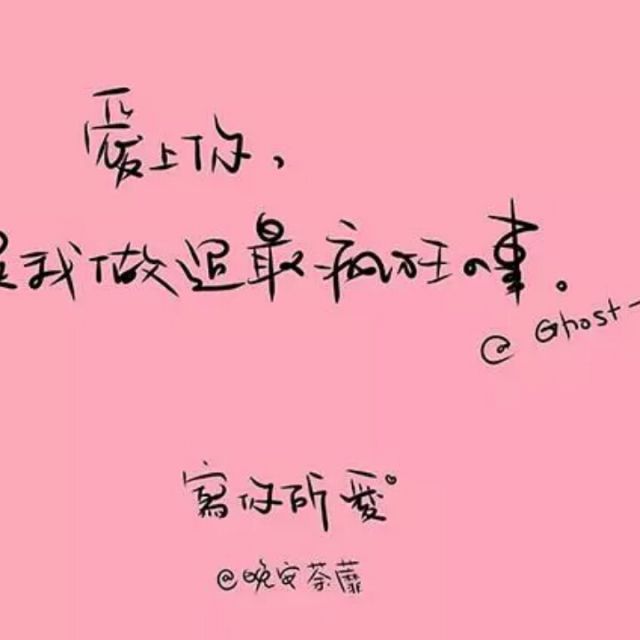 愛上你，
是我做過最瘋狂的事。
@ Ghost-
寫你所愛。
@晚安荼蘼